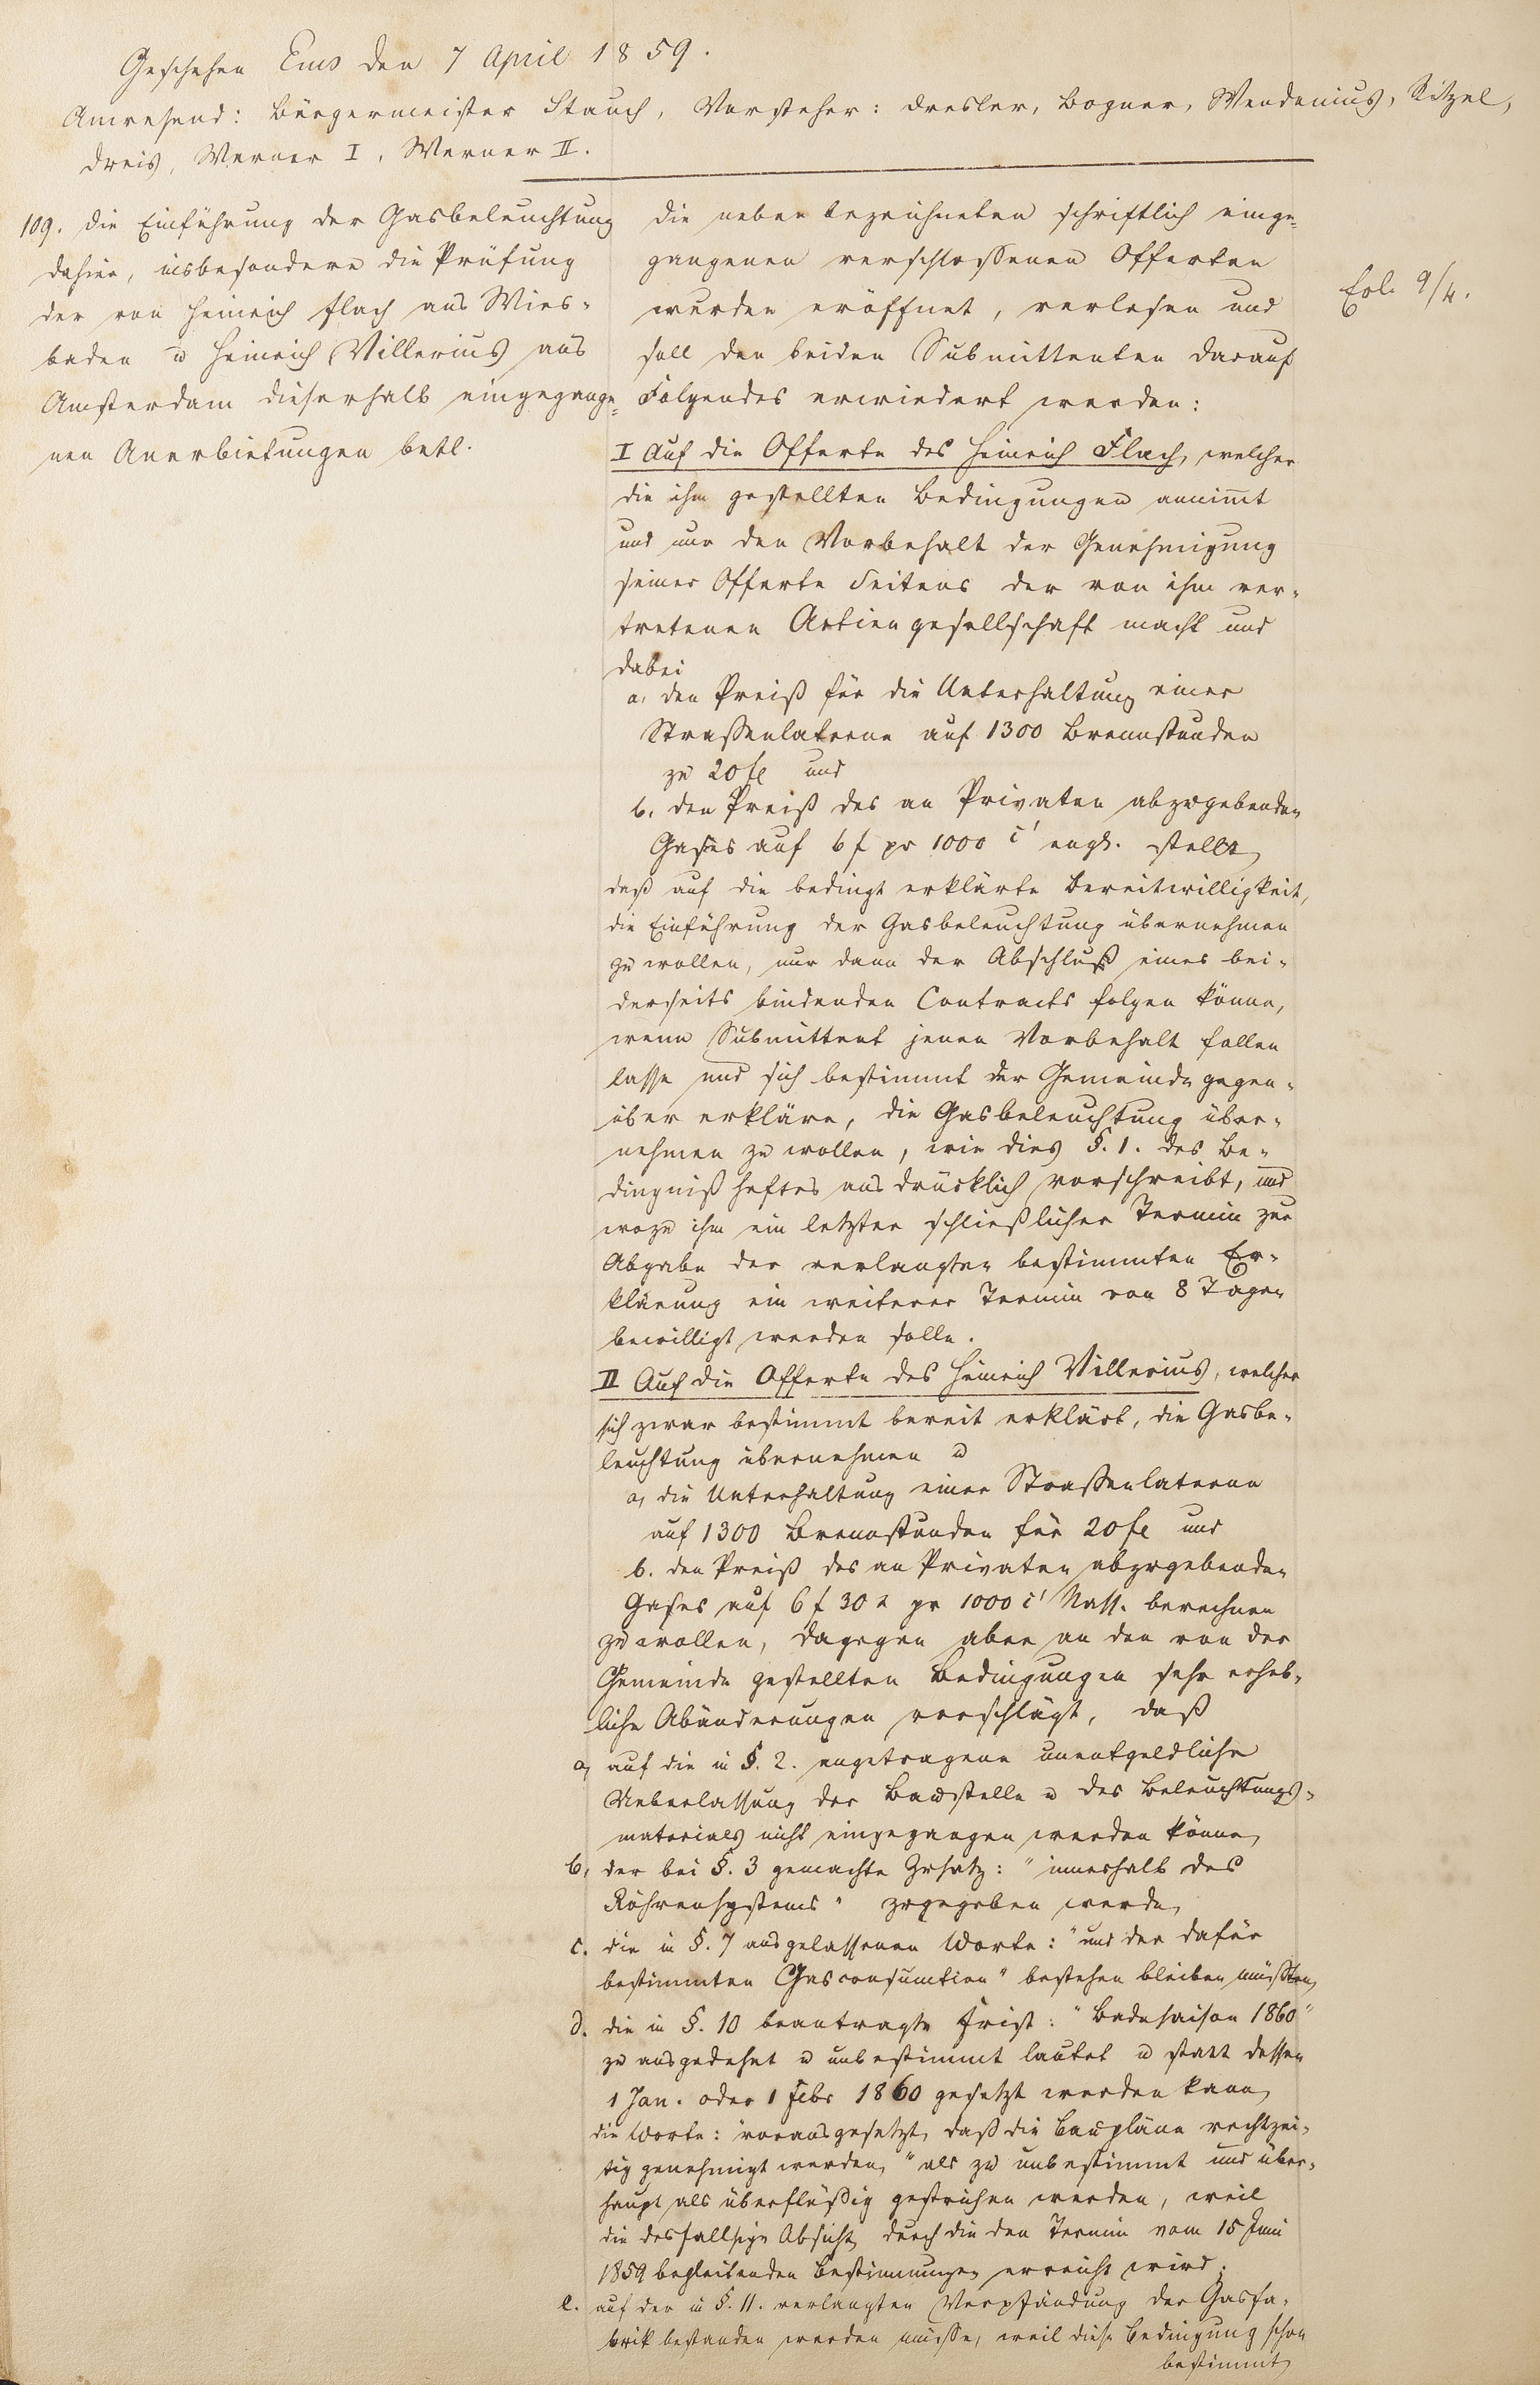 Geschehen Ems den 7 April 1859.
Anwesend: Bürgermeister Stauch, Vorsteher: Dresler, Bogner, Wendenius, Ritzel,
Dreis, Werner I, Werner II.
109. die Einführung der Gasbeleuchtung
dahier, insbesondere die Prüfung
der von Heinrich Flach aus Wies-
baden u Heinrich Villerius aus
Amsterdam dieserhalb eingegange-
nen Anerbietungen betl.
die neben bezeichneten schriftlich einge-
gangenen verschlossenen Offerten
wurden eröffnet, verlesen und
soll den beiden Submittenten darauf
Folgendes erwiedert werden:
I Auf die Offerte des Heinrich Flach, welcher
die ihm gestellten Bedingungen annimt
und nur den Vorbehalt der Genehmigung
seiner Offerte Seitens der von ihm ver-
tretenen Actiengesellschaft macht und
dabei
a, den Preiß für die Unterhaltung einer
Straßenlaterne auf 1300 Brennstunden
zu 20 fl und
b, den Preiß des an Privaten abzugebenden
Gases auf 6 f pr 1000 c' engl. stellt,
daß auf die bedingt erklärte Bereitwilligkeit,
die Einführung der Gasbeleuchtung übernehmen
zu wollen, nur dann der Abschluß eines bei-
derseits bindenden Contracts folgen könne,
wenn Submittent jenen Vorbehalt fallen
lasse und sich bestimmt der Gemeinde gegen-
über erkläre, die Gasbeleuchtung über-
nehmen zu wollen, wie dies §. 1. des Be-
dingnißheftes ausdrücklich vorschreibt, und
wozu ihm ein letzter schließlicher Termin zur
Abgabe der verlangten bestimmten Er-
klärung ein weiterer Termin von 8 Tagen
bewilligt werden solle.
II Auf die Offerte des Heinrich Villerius, welcher
sich zwar bestimmt bereit erklärt, die Gasbe-
leuchtung übernehmen u
a, die Unterhaltung einer Straßenlaterne
auf 1300 Brennstunden für 20 fl und
b. den Preiß des an Privaten abzugebenden
Gases auf 6 f 30 x pr 1000 c' Nass. berechnen
zu wollen, dagegen aber an den von der
Gemeinde gestellten Bedingungen sehr erheb-
liche Abänderungen vorschlägt, daß
a, auf die in §. 2. angetragene unentgeldliche
Ueberlassung der Baustelle u des Beleuchtungs-
materials nicht eingegangen werden könne,
b, der bei §. 3 gemachte Zusatz: "innerhalb des
Röhrensystems" zugegeben werde,
c. die in §. 7 ausgelassenen Worte: "und der dafür
bestimmten Gasconsumtion" bestehen bleiben müßten,
d. die in §. 10 beantragte Frist: "Badesaison 1860"
zu ausgedehnt u unbestimmt lautet u statt dessen
1 Jan. oder 1 Febr 1860 gesetzt werden kann,
die Worte: "vorausgesetzt, daß die Baupläne rechtzei-
tig genehmigt werden," als zu unbestimmt und über-
haupt als überflüßig gestrichen werden, weil
die desfallsige Absicht durch die den Termin vom 15 Juni
1859 begleitenden Bestimmungen erreicht wird.
e. auf der in §. 11. verlangten Verpfändung der Gasfa-
brik bestanden werden müsse, weil diese Bedingung schon
bestimmt